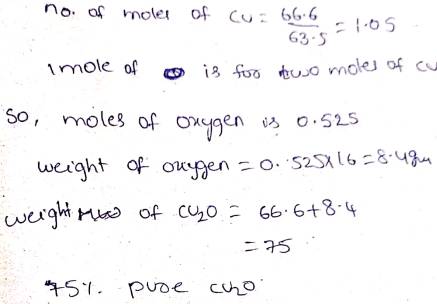 no. of moles of Cu = 66.6/63.5 = 1.05
1 mole of is for two moles of Cu
So, moles of oxygen is 0.525
weight of oxygen = 0.525x16 = 8.4gm
weight of Cu2O = 66.6+8.4
= 75
75%. pure Cu2O